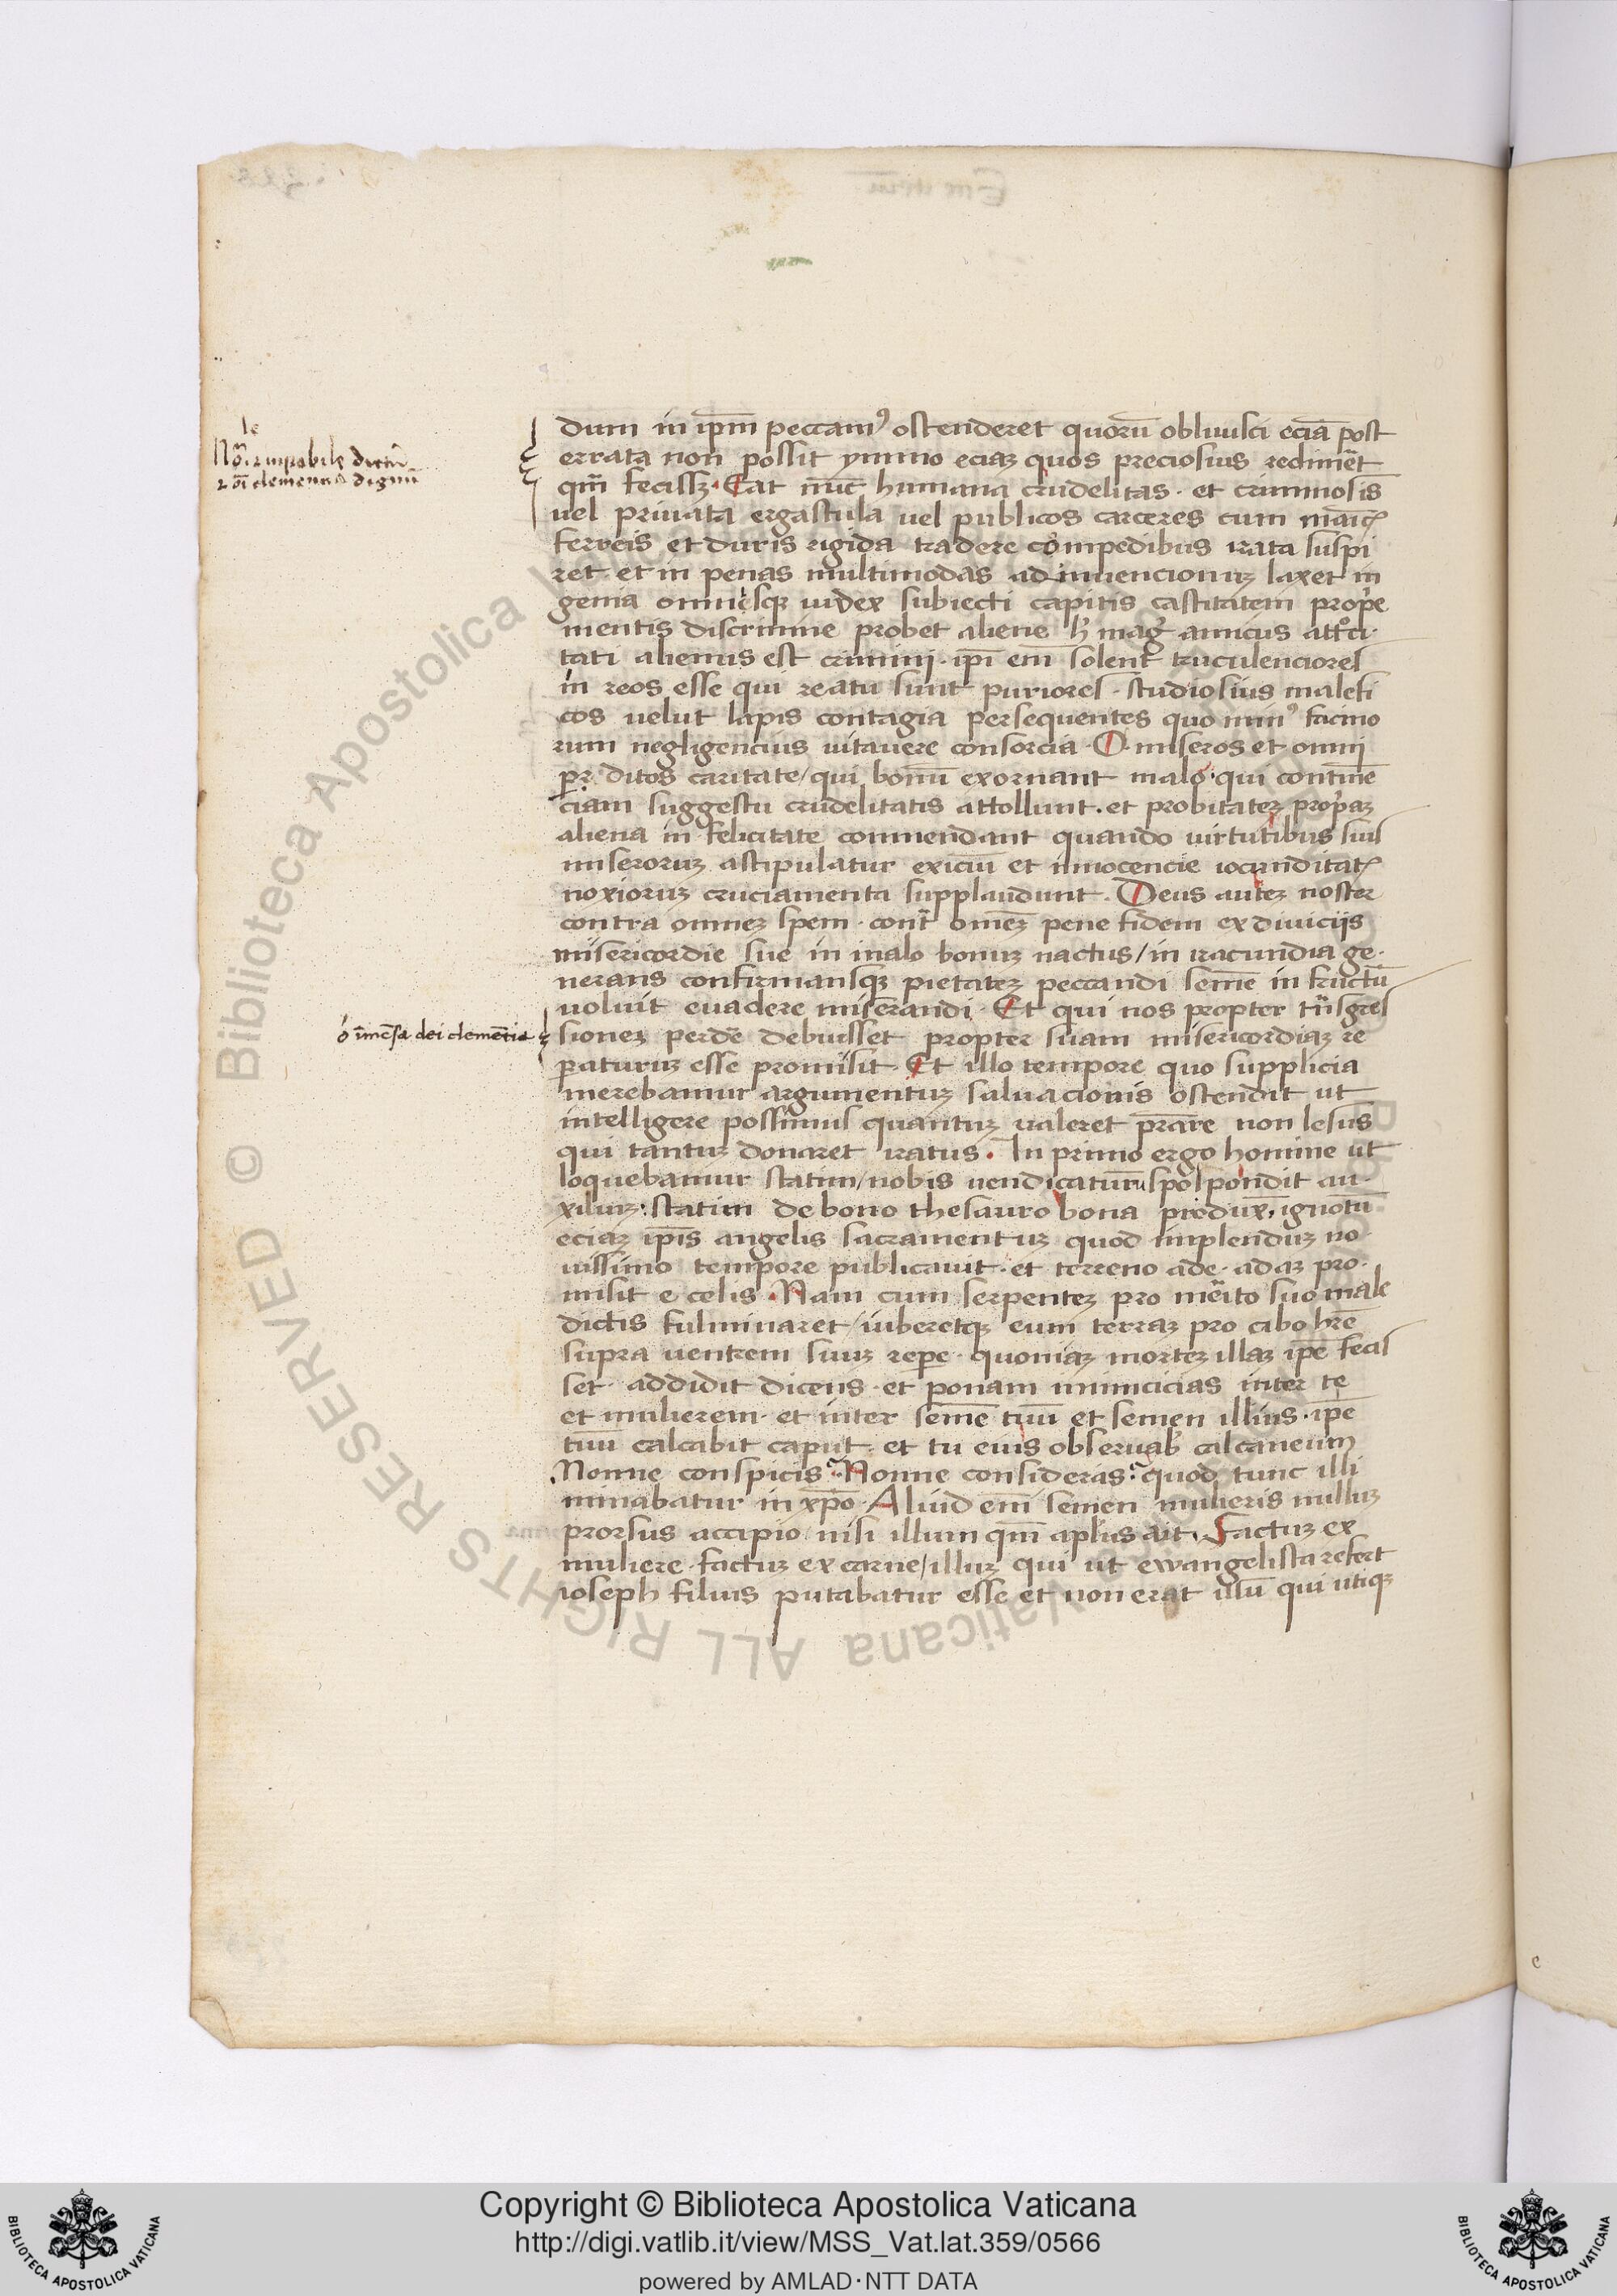 dum in ip̄m peccam᷒ ostenderet quorū obliuisci eciā post
errata non possit ymmo eciaꝫ quos preciosius redimēt
qm̄ fecissꝫ · Eat nūc humana crudelitas · et criminosis
uel priuata ergastula uel publicos carceres cum
ferreis et duris rigida tradere compedibus irata suspi
ret · et in penas multimodas adinuencionuꝫ laxet in
genia omnesqꝫ iudex subiecti capitis castitatem
mentis discrimine probet aliene amicus
tati alienus est crimini · ip̄i em̄ solent truculenciores
in reos esse qui reatu sunt puriores · studiosius malefi
cos uelut lapis contagia persequentes quo min᷒ facino
rum negligencius uitauere consorcia · O · miseros et omni
ditos caritate / qui bonū exornant malo · qui contine͞
ciam suggestu crudelitatis attollunt · et probitateꝫ
aliena in felicitate commendant quando uirtutibus suis
miseroruꝫ astipulatur exiciū et innocencie
noxioruꝫ cruciamenta supplaudunt · Deus auteꝫ noster
contra omneꝫ spem · cont̄ omēꝫ pene fidem ex diuiciis
misericordie sue in malo bonuꝫ nactus / in iracundia ge·
nerans confirmansqꝫ pietateꝫ peccandi seme͞ in fructū
uoluit euadere miserandi · Et qui nos propter tn̄sgres
sioneꝫ perde͞ debuisset propter suam misericordiaꝫ re
paturuꝫ esse promisit · Et illo tempore quo supplicia
merebamur argumentuꝫ saluacionis ostendit ut
intelligere possimus quantuꝫ ualeret non lesus
qui tantuꝫ donaret iratus · In primo ergo homine ut
loquebamur statim / nobis uendicaturū spospondit au·
xiliuꝫ · statim de bono thesauro bona ignotū
eciaꝫ ip̄is angelis sacramentuꝫ quod implenduꝫ no·
uissimo tempore publicauit · et terreno ade · adaꝫ pro·
misit e celis · Nam cum serpenteꝫ pro me͞ito suo male
dictis fulminaret / iuberetqꝫ eum terraꝫ pro cibo hr̄e
supra uentrem suuꝫ repe · quoniaꝫ morteꝫ illaꝫ ip̄e fecis
set · addidit dicens · et ponam inimicicias inter te
et mulierem · et inter seme͞ tuū et semen illius · ip̄e
tuū calcabit caput · et tu eius calcaneum
Nonne conspicis · Nonne consideras · quod tunc illi
minabatur in xp̄o · Aliud em̄ semen mulieris nulluꝫ
prorsus accipio nisi illum qm̄ apl̄us ait · Factuꝫ ex
muliere · factuꝫ ex carne / illuꝫ qui ut ewangelista refert
ioseph filius putabatur esse et non erat illū qui utiqꝫ
ó īme͞sa dei cleme͞tia
Copyright © Biblioteca Apostolica Vaticana
http://digi.vatlib.it/view/MSS_Vat.lat.359/0566
powered by AMLAD·NTT DATA
BIBLIOTECA APOSTOLICA VATICANA
BIBLIOTECA APOSTOLICA VATICANA
© Biblioteca Apostolica Vaticana ALL RIGHTS RESERVED